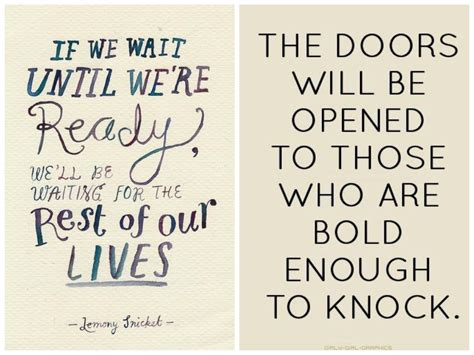 IF WE WAIT
UNTIL WE'RE
Ready,
WE'LL BE
WAITING FOR THE
Rest of our
LIVES
- Lemony Snicket -
THE DOORS
WILL BE
OPENED
TO THOSE
WHO ARE
BOLD
ENOUGH
TO KNOCK.
GIRLY-GIRL-GRAPHICS